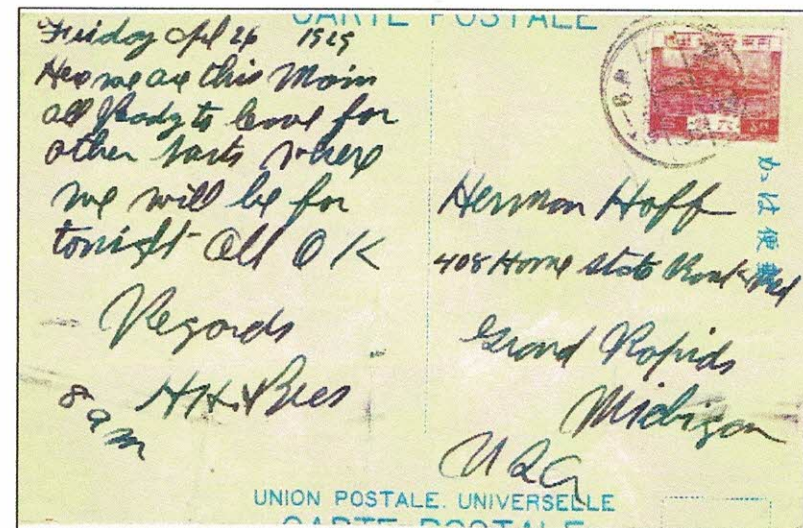 CARTE POSTALE
Friday Apl 26 1929
Here we are this Morn
all Ready to leave for
other parts where
we will be for
tonight All OK
Regards
8 am
Herman Hoff
408 Home State
Grand Rapids
Michigan
USA
UNION POSTALE. UNIVERSELLE
CARTE POSTALE